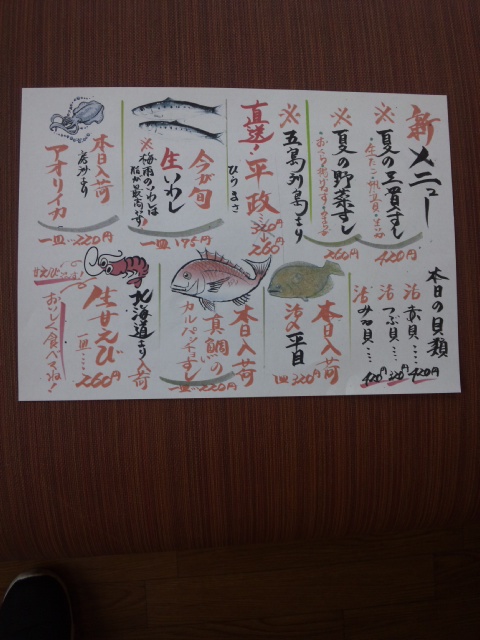 新メニュー
※夏の三貫すし
420円
※夏の野菜すし
260円
※五島列島より
直送!平政
ひらまさ
260
今が旬
生いわし
※梅雨のいわしは
脂が最高です!
一皿…175円
本日入荷
アオリイカ
一皿…220円
本日の貝類
活赤貝‥‥420円
活つぶ貝‥‥320円
活みる貝‥‥420円
本日入荷
活〆平目
1皿320円
本日入荷
真鯛の
カルパッチョすし
一皿…220円
北海道より入荷
生甘えび
一皿…260円
おいしく食べてね!